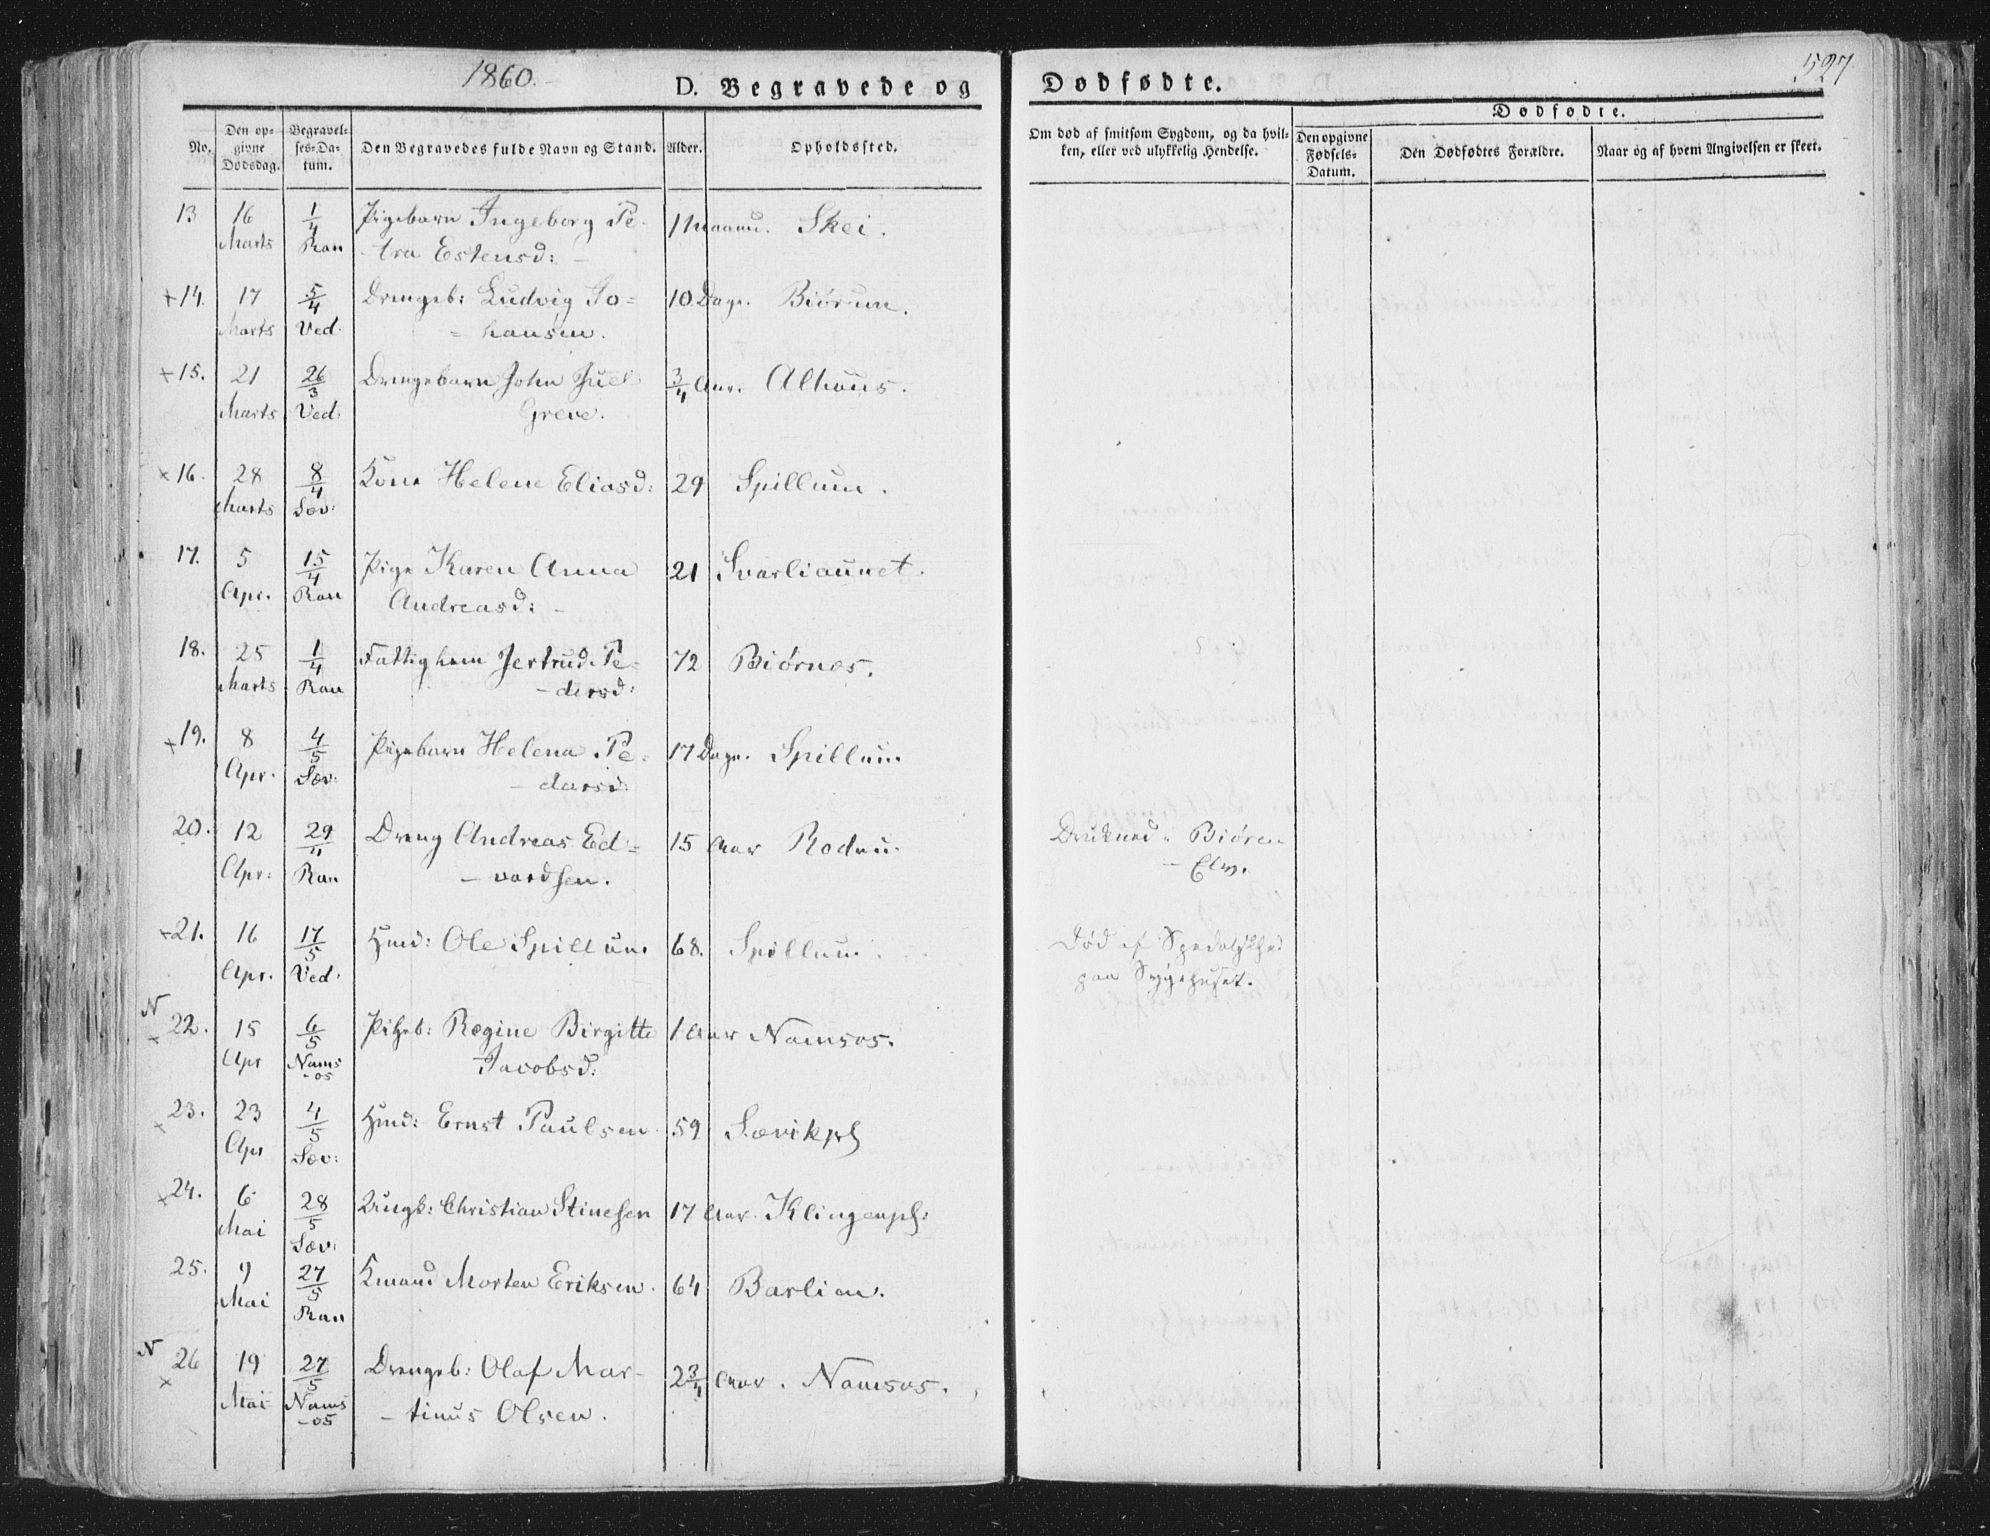 1860.
D. Begravede og Dødfødte.
527
No.
Den opgivne Dødsdag.
Begravelses-Datum.
Den Begravedes fulde Navn og Stand.
Alder.
Opholdssted.
Om død af smitsom Sygdom, og da hvilken, eller ved ulykkelig Hendelse.
Dødfødte.
Den opgivne Fødsels-Datum.
Den Dødfødtes Forældre.
Naar og af hvem Angivelsen er skeet.
13 16 1/4 Pigebarn Ingeborg Pe- 11 Skei.
Marts Ran -tra Estensd: -
+14. 17 5/4 Drengeb: Ludvig Jo= 10 Dage. Biørum.
Marts Ved. = hansen.
+15. 21 26/3 Drengebarn John Juel 3/4 Aar. Alhuus.
Marts Ved: Greve.
x16. 28 8/4 Kone Helene Eliasd: 29 Spillum.
Marts Sæv:
17. 5 15/4 Pige Karen Anna 21 Svarliaunet.
Apr. Ran Andreasd: -
18. 25 1/4 Fattiglem Jertrud Pe- 72 Biørnes.
Marts Ran -dersd:
+19. 8 4/5 Pigebarn Helena Pe- 17 Dage. Spillum
Apr. Sæv: -darsd:
20. 12 29/4 Dreng Andreas Ed= 15 Aar Drukned Biøren
Apr: Ran - vardsen. - Elv.
+21. 16 17/5 Hmd: Ole Spillum 68. Spillum. Død af Spedalskhed
Apr. Ved. paa Sygehuset.
N
x 22. 15 6/5 Pigeb: Regine Birgitte 1 Aar Namsos.
Apr Nams-os Jacobsd:
x 23. 23 4/5 Hmd: Ernst Paulsen 59 Sævikpl
Apr Sæv:
x24. 6 28/5 Ungk: Christian Stinesen 17 Aar. Klingenpl:
Mai Sæv:
25. 9 27/5 Kmand Morten Eriksen. 64 Barlien.
Mai Ran
N
x 26 19 27/5 Drengeb: Olaf Mar- 2 3/4 Aar. Namsos.
Mai Nams-os - tinus Olsen.